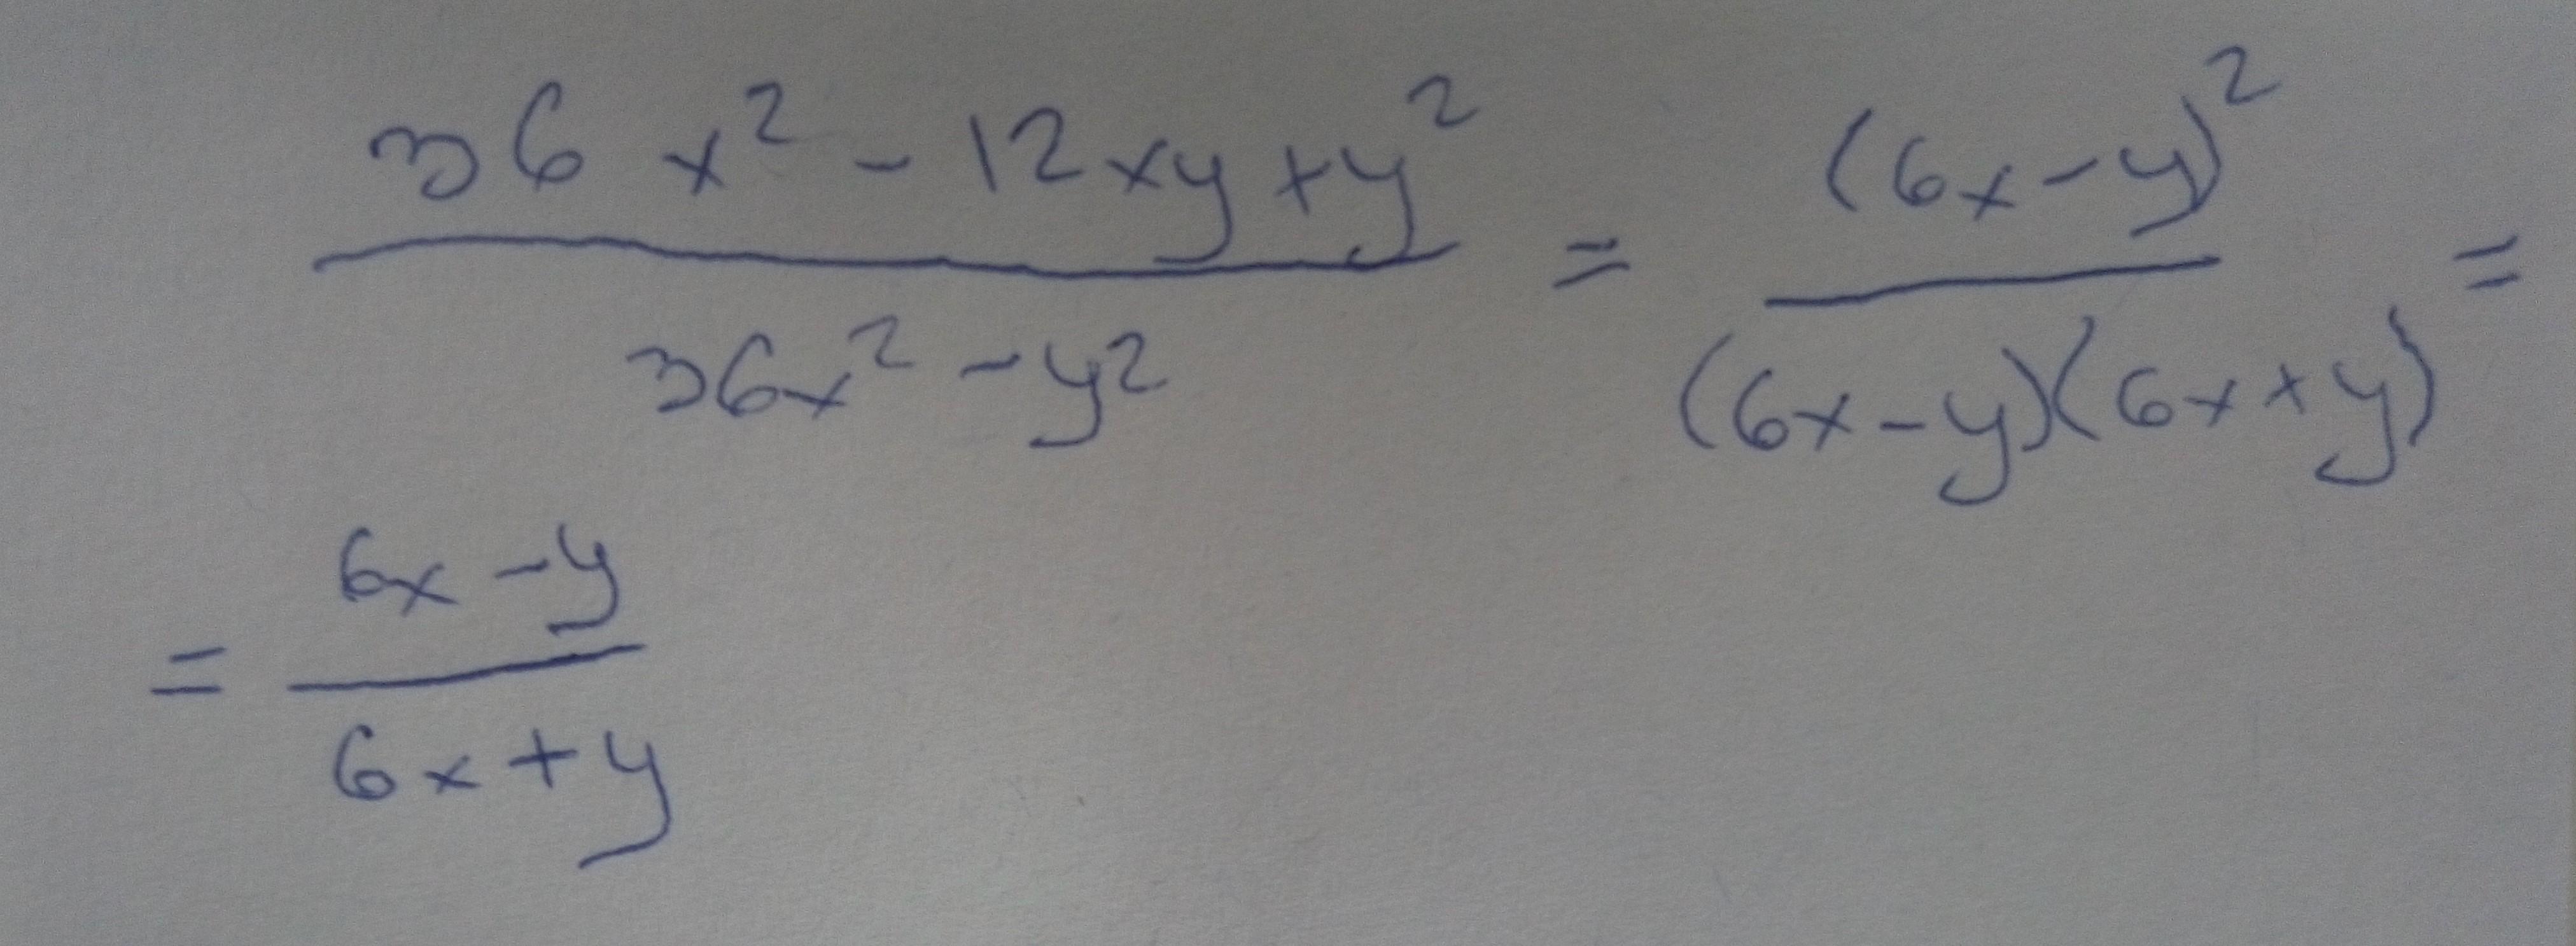 36x² - 12xy + y² / 36x² - y² = (6x - y)² / (6x - y)(6x + y) =
= 6x - y / 6x + y